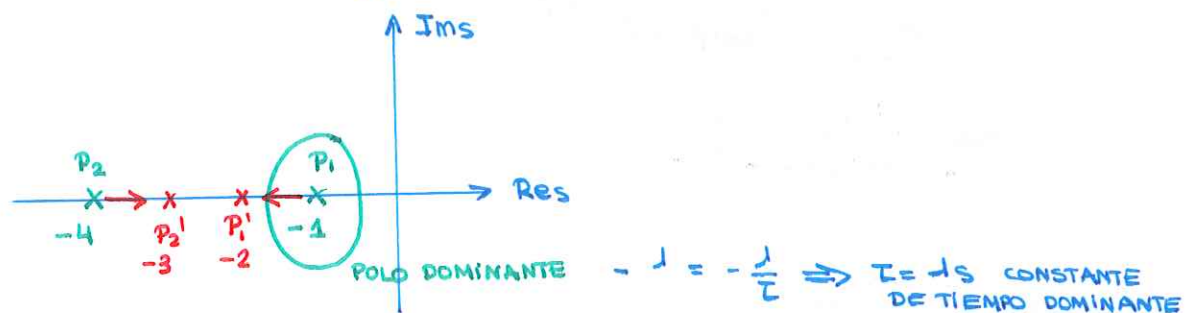 Ims
P₂
P₁
Res
-4
P₂'
P₁'
-1
-3
-2
POLO DOMINANTE
- 1 = - 1/τ ⟹ τ = 1s CONSTANTE
DE TIEMPO DOMINANTE